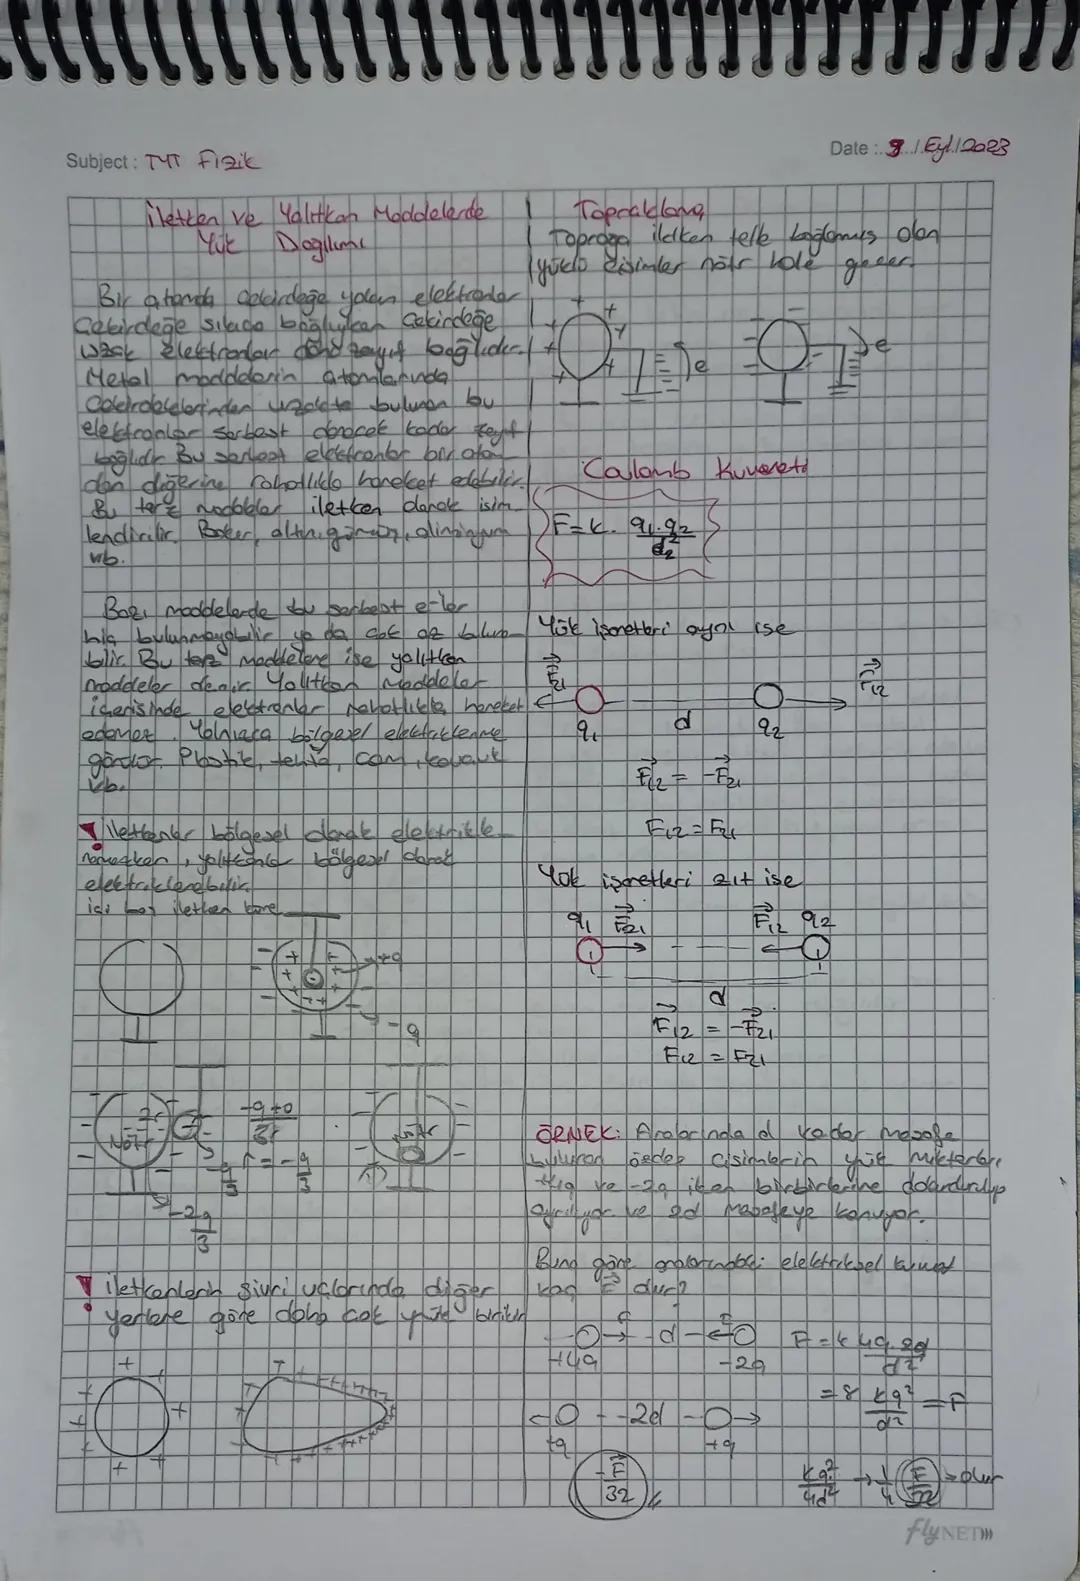 Subject: TYT Fizik
Date: 9 / Eyl. / 2023
İletken ve Yalıtkan Maddelerde
Yük Dağılımı
Bir atomda çekirdeğe yakın elektronlar
Çekirdeğe sıkıca bağlıyken Çekirdeğe
uzak elektronlar daha zayıf bağlıdır.
Metal maddelerin atomlarında
çekirdeklerinden uzakta bulunan bu
elektronlar serbest denecek kadar zayıf
bağlıdır Bu serbest elektronlar bir atom
dan diğerine rahatlıkla hareket edebilir.
Bu tarz maddeler iletken olarak isim
lendirilir. Bakır, altın, gümüş, aliminyum
vb.
Bazı maddelerde bu serbest e-ler
hiç bulunmayabilir ya da çok az bulun
bilir. Bu tarz maddelere ise yalıtkan
maddeler denir. Yalıtkan maddeler
içerisinde elektronlar rahatlıkla hareket
edemez. Yalnızca bölgesel elektriklenme
görülür. Plastik, tahta, cam, kauçuk
vb.
! İletkenler bölgesel olarak elektrikle
nemezken, yalıtkanlar bölgesel olarak
elektriklenebilir.
içi boş iletken küre
+q
-q
2r
Nötr
-q+0
3r
r = -q
3
-q
3
-2q
3
Nötr
! İletkenlerin sivri uçlarında diğer
yerlere göre daha çok yük birikir
Topraklama
Toprağa iletken telle bağlanmış olan
yüklü cisimler nötr hale geçer.
e
e
Coulomb Kuvveti
F = k. q1.q2
d2
Yük işaretleri aynı ise
F21 F12
q1 d q2
F12 = -F21
F12 = F21
Yük işaretleri zıt ise
q1 F21 F12 q2
d
F12 = -F21
F12 = F21
ÖRNEK: Aralarında d kadar mesafe
bulunan özdeş cisimlerin yük miktarları
+4q ve -2q iken birbirlerine dokundurulup
ayrılıyor ve 2d mesafeye konuyor.
Buna göre aralarındaki elektriksel kuvvet
kaç F dur?
d F = k 4q.2q
+4q -2q d2
= 8 kq2 = F
d2
2d
+q +q
-F
32
kq2 → 1 F → olur
4d2 4 32
flyNET